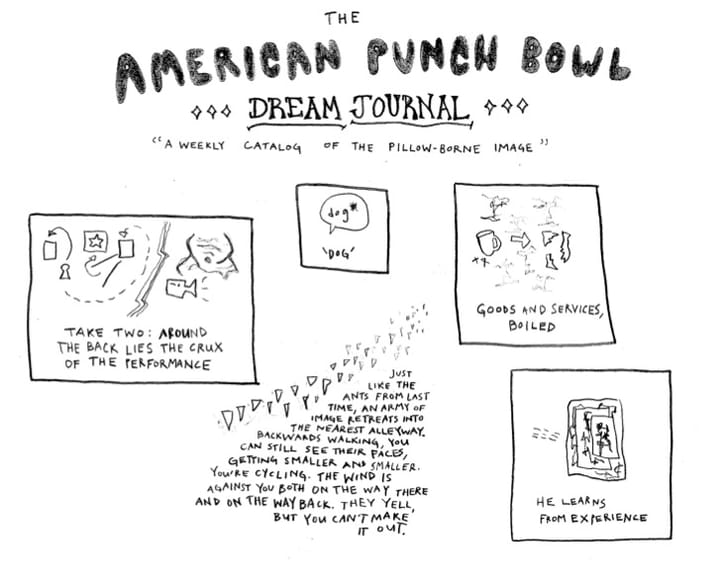 THE
AMERICAN PUNCH BOWL
DREAM JOURNAL
"A WEEKLY CATALOG OF THE PILLOW-BORNE IMAGE"
dog*
'DOG'
TAKE TWO: AROUND
THE BACK LIES THE CRUX
OF THE PERFORMANCE
GOODS AND SERVICES,
BOILED
JUST
LIKE THE
ANTS FROM LAST
TIME, AN ARMY OF
IMAGE RETREATS INTO
THE NEAREST ALLEYWAY.
BACKWARDS WALKING, YOU
CAN STILL SEE THEIR FACES,
GETTING SMALLER AND SMALLER.
YOU'RE CYCLING. THE WIND IS
AGAINST YOU BOTH ON THE WAY THERE
AND ON THE WAY BACK. THEY YELL,
BUT YOU CAN'T MAKE
IT OUT.
HE LEARNS
FROM EXPERIENCE